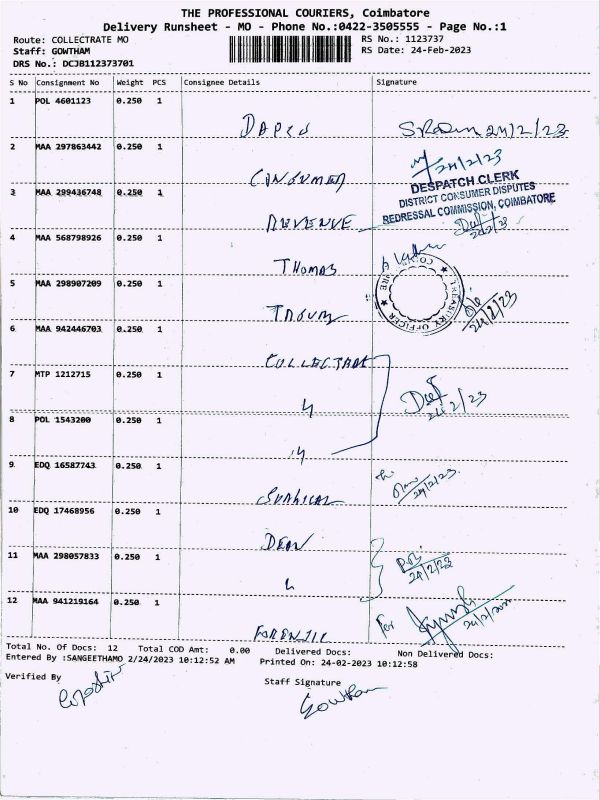 THE PROFESSIONAL COURIERS, Coimbatore
Delivery Runsheet - MO - Phone No.:0422-3505555 - Page No.:1
Route: COLLECTRATE MO
RS No.: 1123737
Staff: GOWTHAM
RS Date: 24-Feb-2023
DRS No.: DCJB112373701
S No Consignment No Weight PCS Consignee Details Signature
1 POL 4601123 0.250 1
24/2/23
2 MAA 297863442 0.250 1
24/2/23
CONSUMER
DESPATCH CLERK
DISTRICT CONSUMER DISPUTES
REDRESSAL COMMISSION, COIMBATORE
3 MAA 299436748 0.250 1
REVENUE
4 MAA 568798926 0.250 1
THOMAS
TREASURY OFFICER
5 MAA 298907209 0.250 1
24/2/23
6 MAA 942446703 0.250 1
COLLECTRATE
7 MTP 1212715 0.250 1
24/2/23
8 POL 1543200 0.250 1
9 EDQ 16587743 0.250 1
24/2/23
SURGICAL
10 EDQ 17468956 0.250 1
DEAN
11 MAA 298057833 0.250 1
24/2/23
12 MAA 941219164 0.250 1
For
FORENSIC
Total No. Of Docs: 12 Total COD Amt: 0.00 Delivered Docs: Non Delivered Docs:
Entered By :SANGEETHAMO 2/24/2023 10:12:52 AM Printed On: 24-02-2023 10:12:58
Verified By
Staff Signature
Gowtham